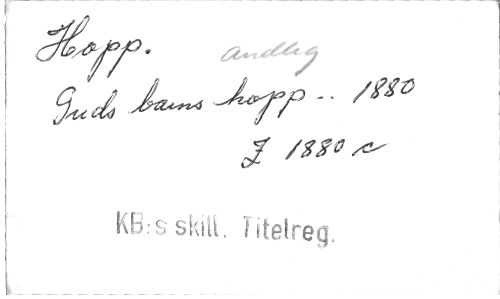 Hopp. andlig
Guds barns hopp -- 1880
F 1880 c
KB:s skill. Titelreg.